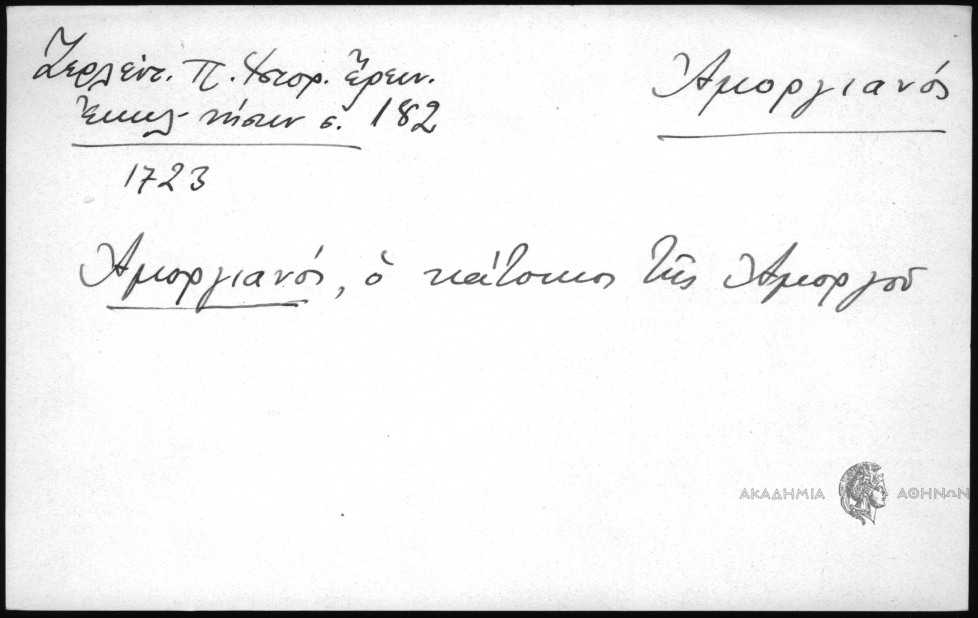 Ζερλέντ. Π. Ἱστορ. ἔρευν.
Ἐκκλ. νήσων σ. 182
1723
Ἀμοργιανός
Ἀμοργιανός, ὁ κάτοικος τῆς Ἀμοργοῦ
ΑΚΑΔΗΜΙΑ ΑΘΗΝΩΝ